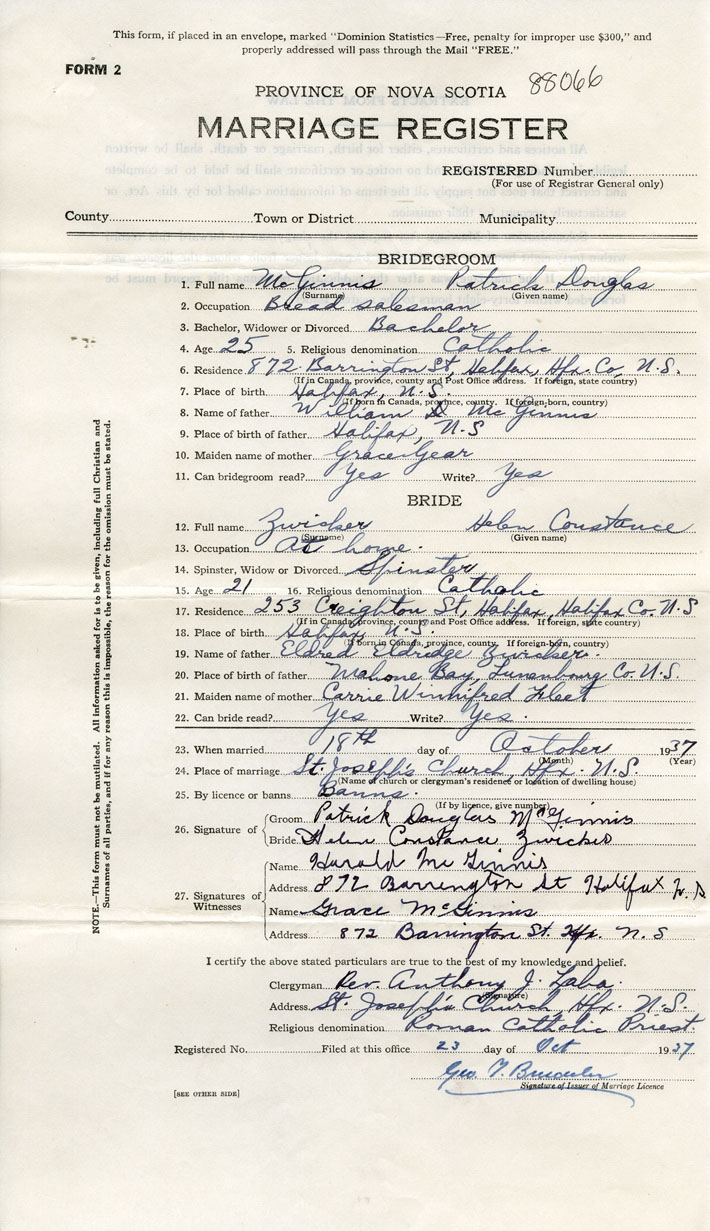 This form, if placed in an envelope, marked "Dominion Statistics—Free, penalty for improper use $300," and
properly addressed will pass through the Mail "FREE."
FORM 2
88066
PROVINCE OF NOVA SCOTIA
MARRIAGE REGISTER
REGISTERED Number
(For use of Registrar General only)
County Town or District Municipality
BRIDEGROOM
1. Full name McGinnis Patrick Douglas
(Surname) (Given name)
2. Occupation Bread salesman
3. Bachelor, Widower or Divorced Bachelor
4. Age 25 5. Religious denomination Catholic
6. Residence 872 Barrington St, Halifax, Hfx. Co, N.S.
(If in Canada, province, county and Post Office address. If foreign, state country)
7. Place of birth Halifax, N.S.
(If born in Canada, province, county. If foreign-born, country)
8. Name of father William D. McGinnis
9. Place of birth of father Halifax, N.S
10. Maiden name of mother Grace Gear
11. Can bridegroom read? Yes Write? Yes
BRIDE
12. Full name Zwicker Helen Constance
(Surname) (Given name)
13. Occupation At home.
14. Spinster, Widow or Divorced Spinster
15. Age 21 16. Religious denomination Catholic
17. Residence 253 Creighton St, Halifax, Halifax Co. N.S
(If in Canada, province, county and Post Office address. If foreign, state country)
18. Place of birth Halifax, N.S.
(If born in Canada, province, county. If foreign-born, country)
19. Name of father Eldred Eldridge Zwicker.
20. Place of birth of father Mahone Bay, Lunenburg Co. N.S.
21. Maiden name of mother Carrie Winnifred Fleet
22. Can bride read? Yes Write? Yes.
23. When married 18th day of October 1937
(Month) (Year)
24. Place of marriage St. Joseph's Church, Hfx. N.S.
(Name of church or clergyman's residence or location of dwelling house)
25. By licence or banns Banns.
(If by licence, give number)
26. Signature of Groom Patrick Douglas McGinnis
Bride Helen Constance Zwicker
27. Signatures of Witnesses
Name Harald McGinnis
Address 872 Barrington St Halifax N.S
Name Grace McGinnis
Address 872 Barrington St. Hfx. N.S
I certify the above stated particulars are true to the best of my knowledge and belief.
Clergyman Rev. Anthony J. Laba.
(Signature)
Address St. Joseph's Church, Hfx. N.S.
Religious denomination Roman Catholic Priest.
Registered No. Filed at this office 23 day of Oct 1937
Geo.
Signature of Issuer of Marriage Licence
[SEE OTHER SIDE]
NOTE.—This form must not be mutilated. All information asked for is to be given, including full Christian and
Surnames of all parties, and if for any reason this is impossible, the reason for the omission must be stated.